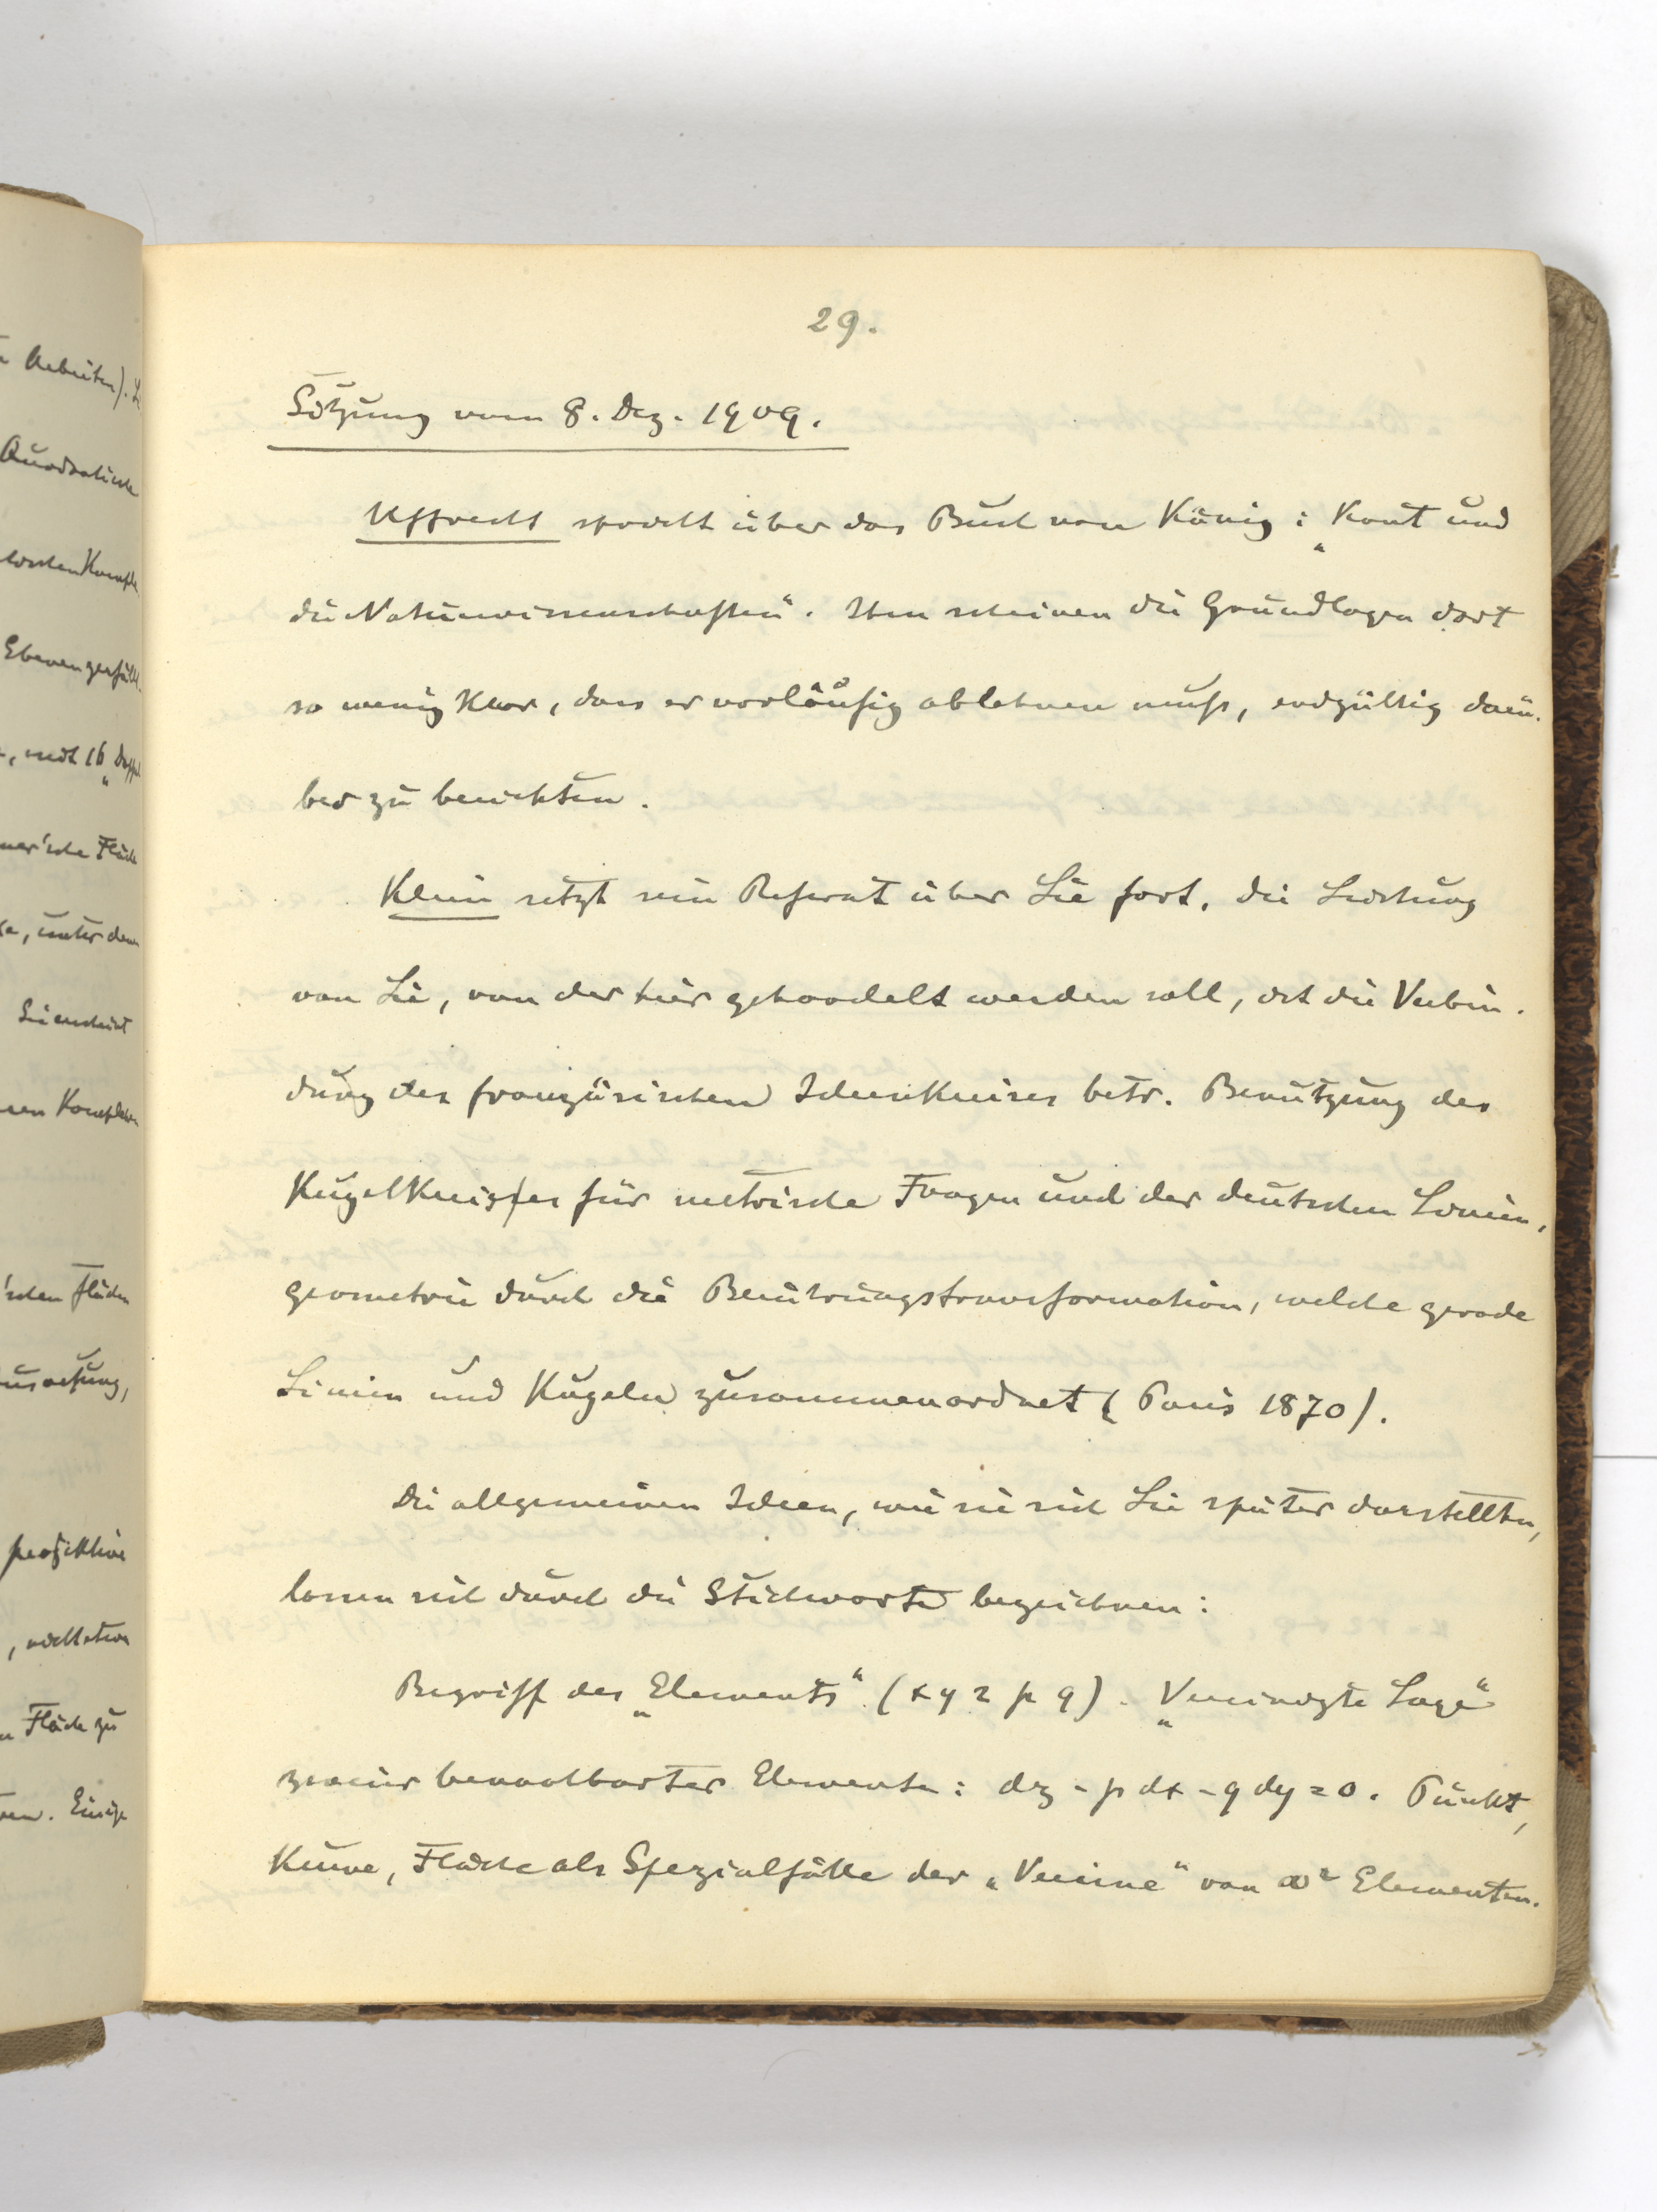 29.
Sitzung vom 8. Dez. 1909.
Uffrecht spricht über das Buch von König: „Kant und
die Naturwissenschaften“. Ihm scheinen die Grundlagen dort
so wenig klar, dass er vorläufig ablehnen muß, endgültig darü-
ber zu berichten.
Klein setzt sein Referat über Lie fort. Die Leistung
von Lie, von der hier gehandelt werden soll, ist die Verbin-
dung des französischen Ideenkreises betr. Benutzung des
Kugelkreises für metrische Fragen und der deutschen Linien-
geometrie durch die Berührungstransformation, welche gerade
Linien und Kugeln zusammenordnet (Paris 1870).
Die allgemeinen Ideen, wie sie sich Lie später darstellten,
lassen sich durch die Stichworte bezeichnen:
Begriff des „Elements“ (x y z p q). „Vereinigte Lage“
zweier benachbarter Elemente: dz - p dx - q dy = 0. Punkt,
Kurve, Fläche als Spezialfälle der „Vereine“ von ∞² Elementen.